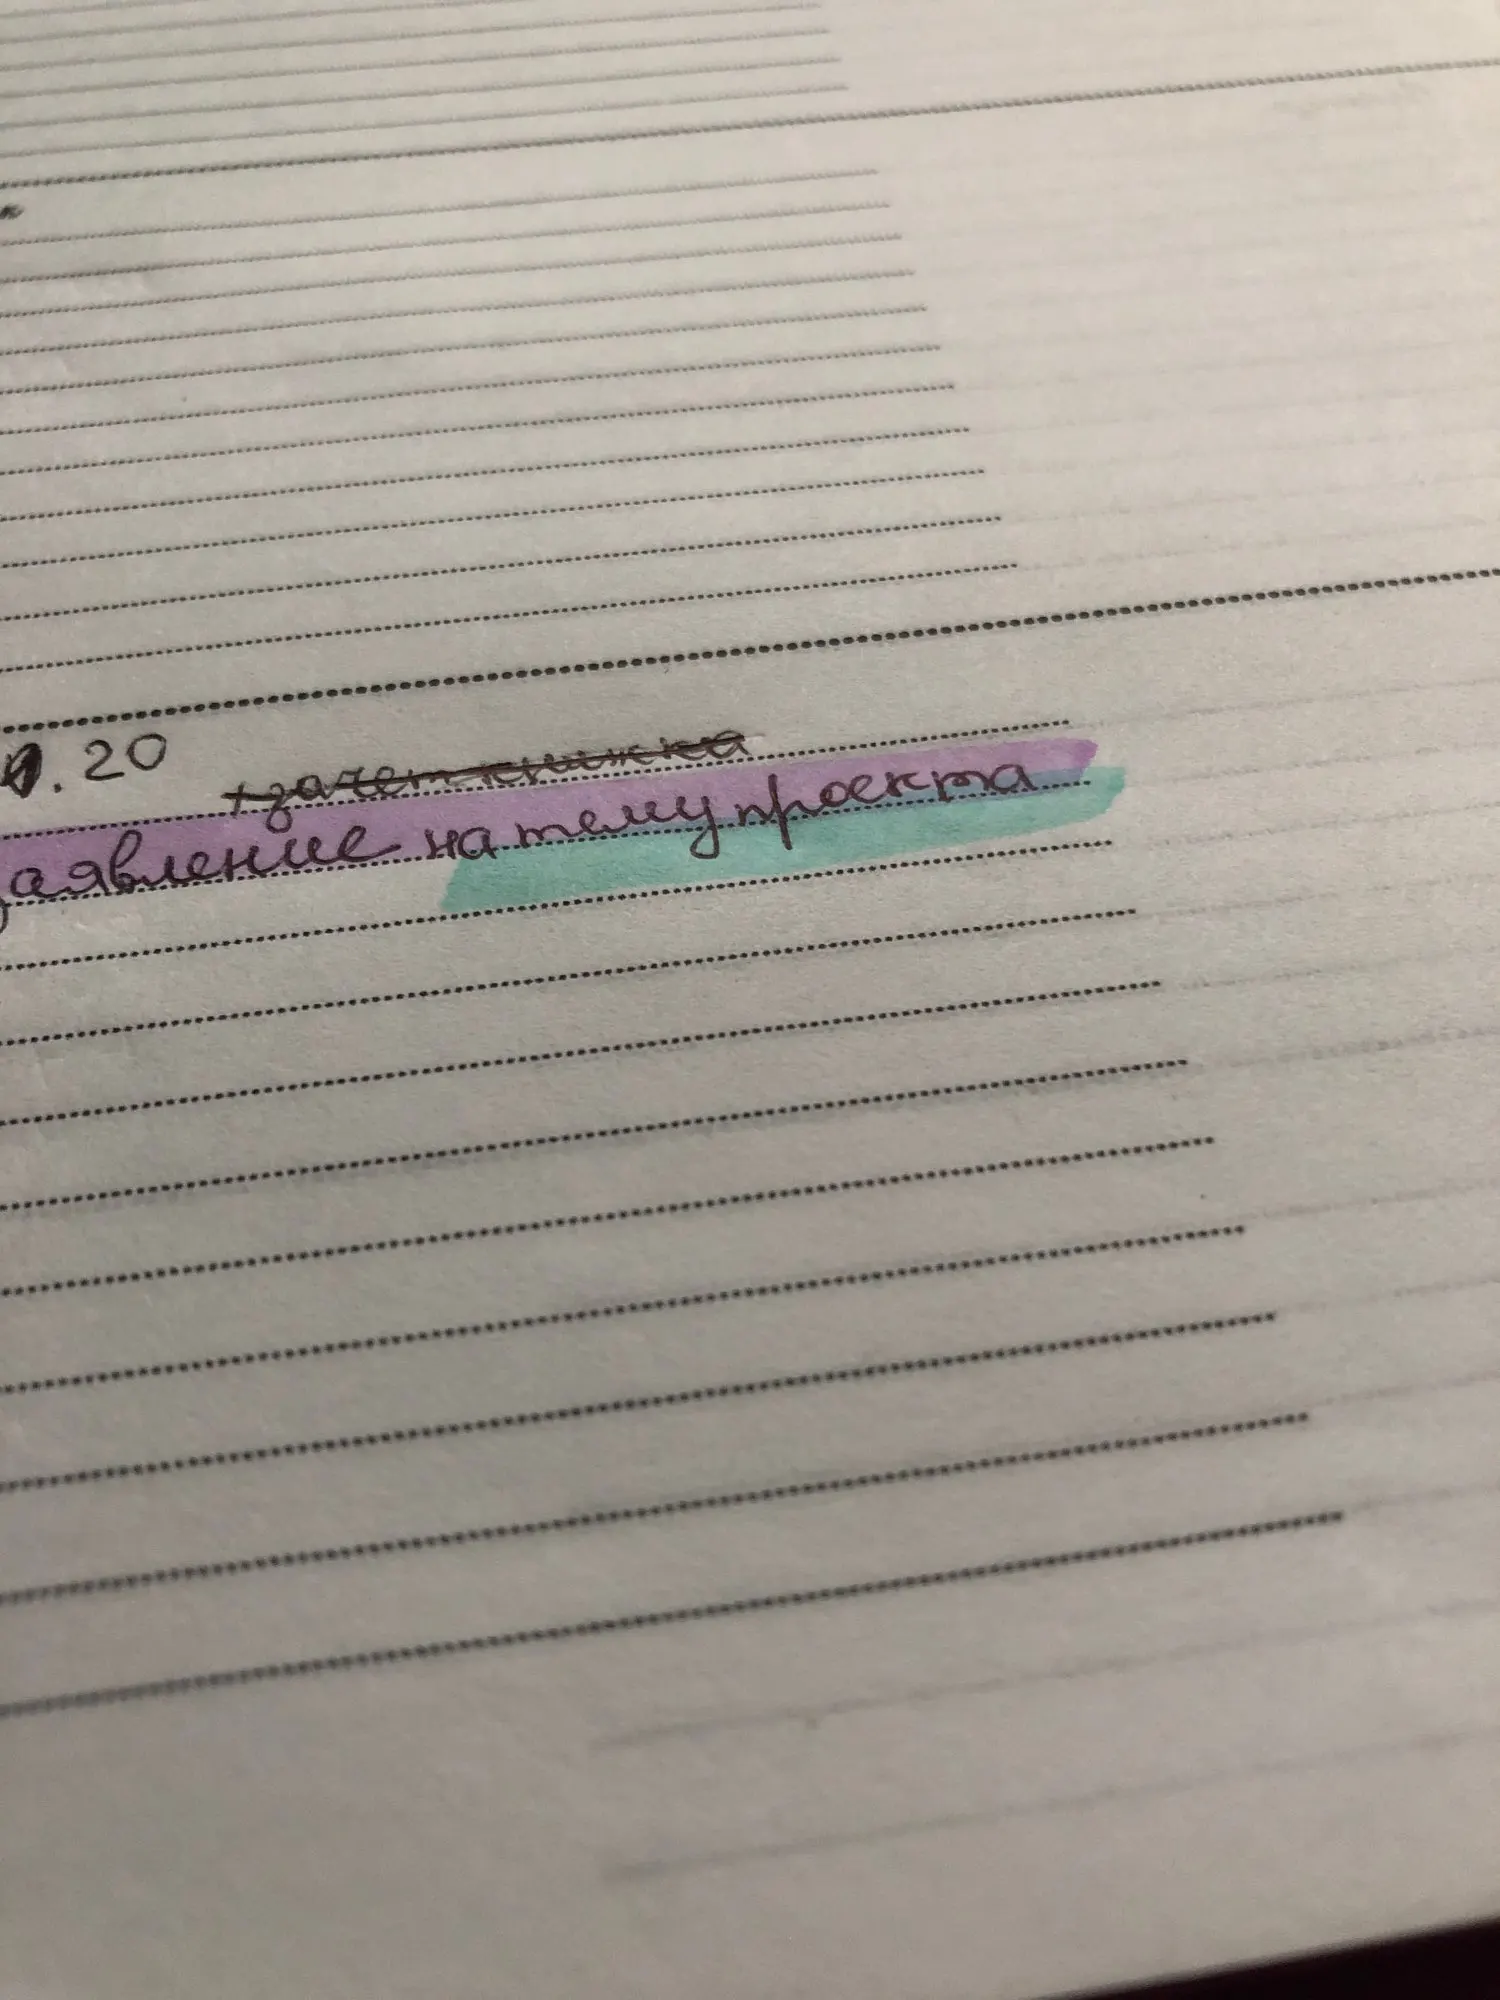 . 20
+ зачет книжка
заявление на тему проекта